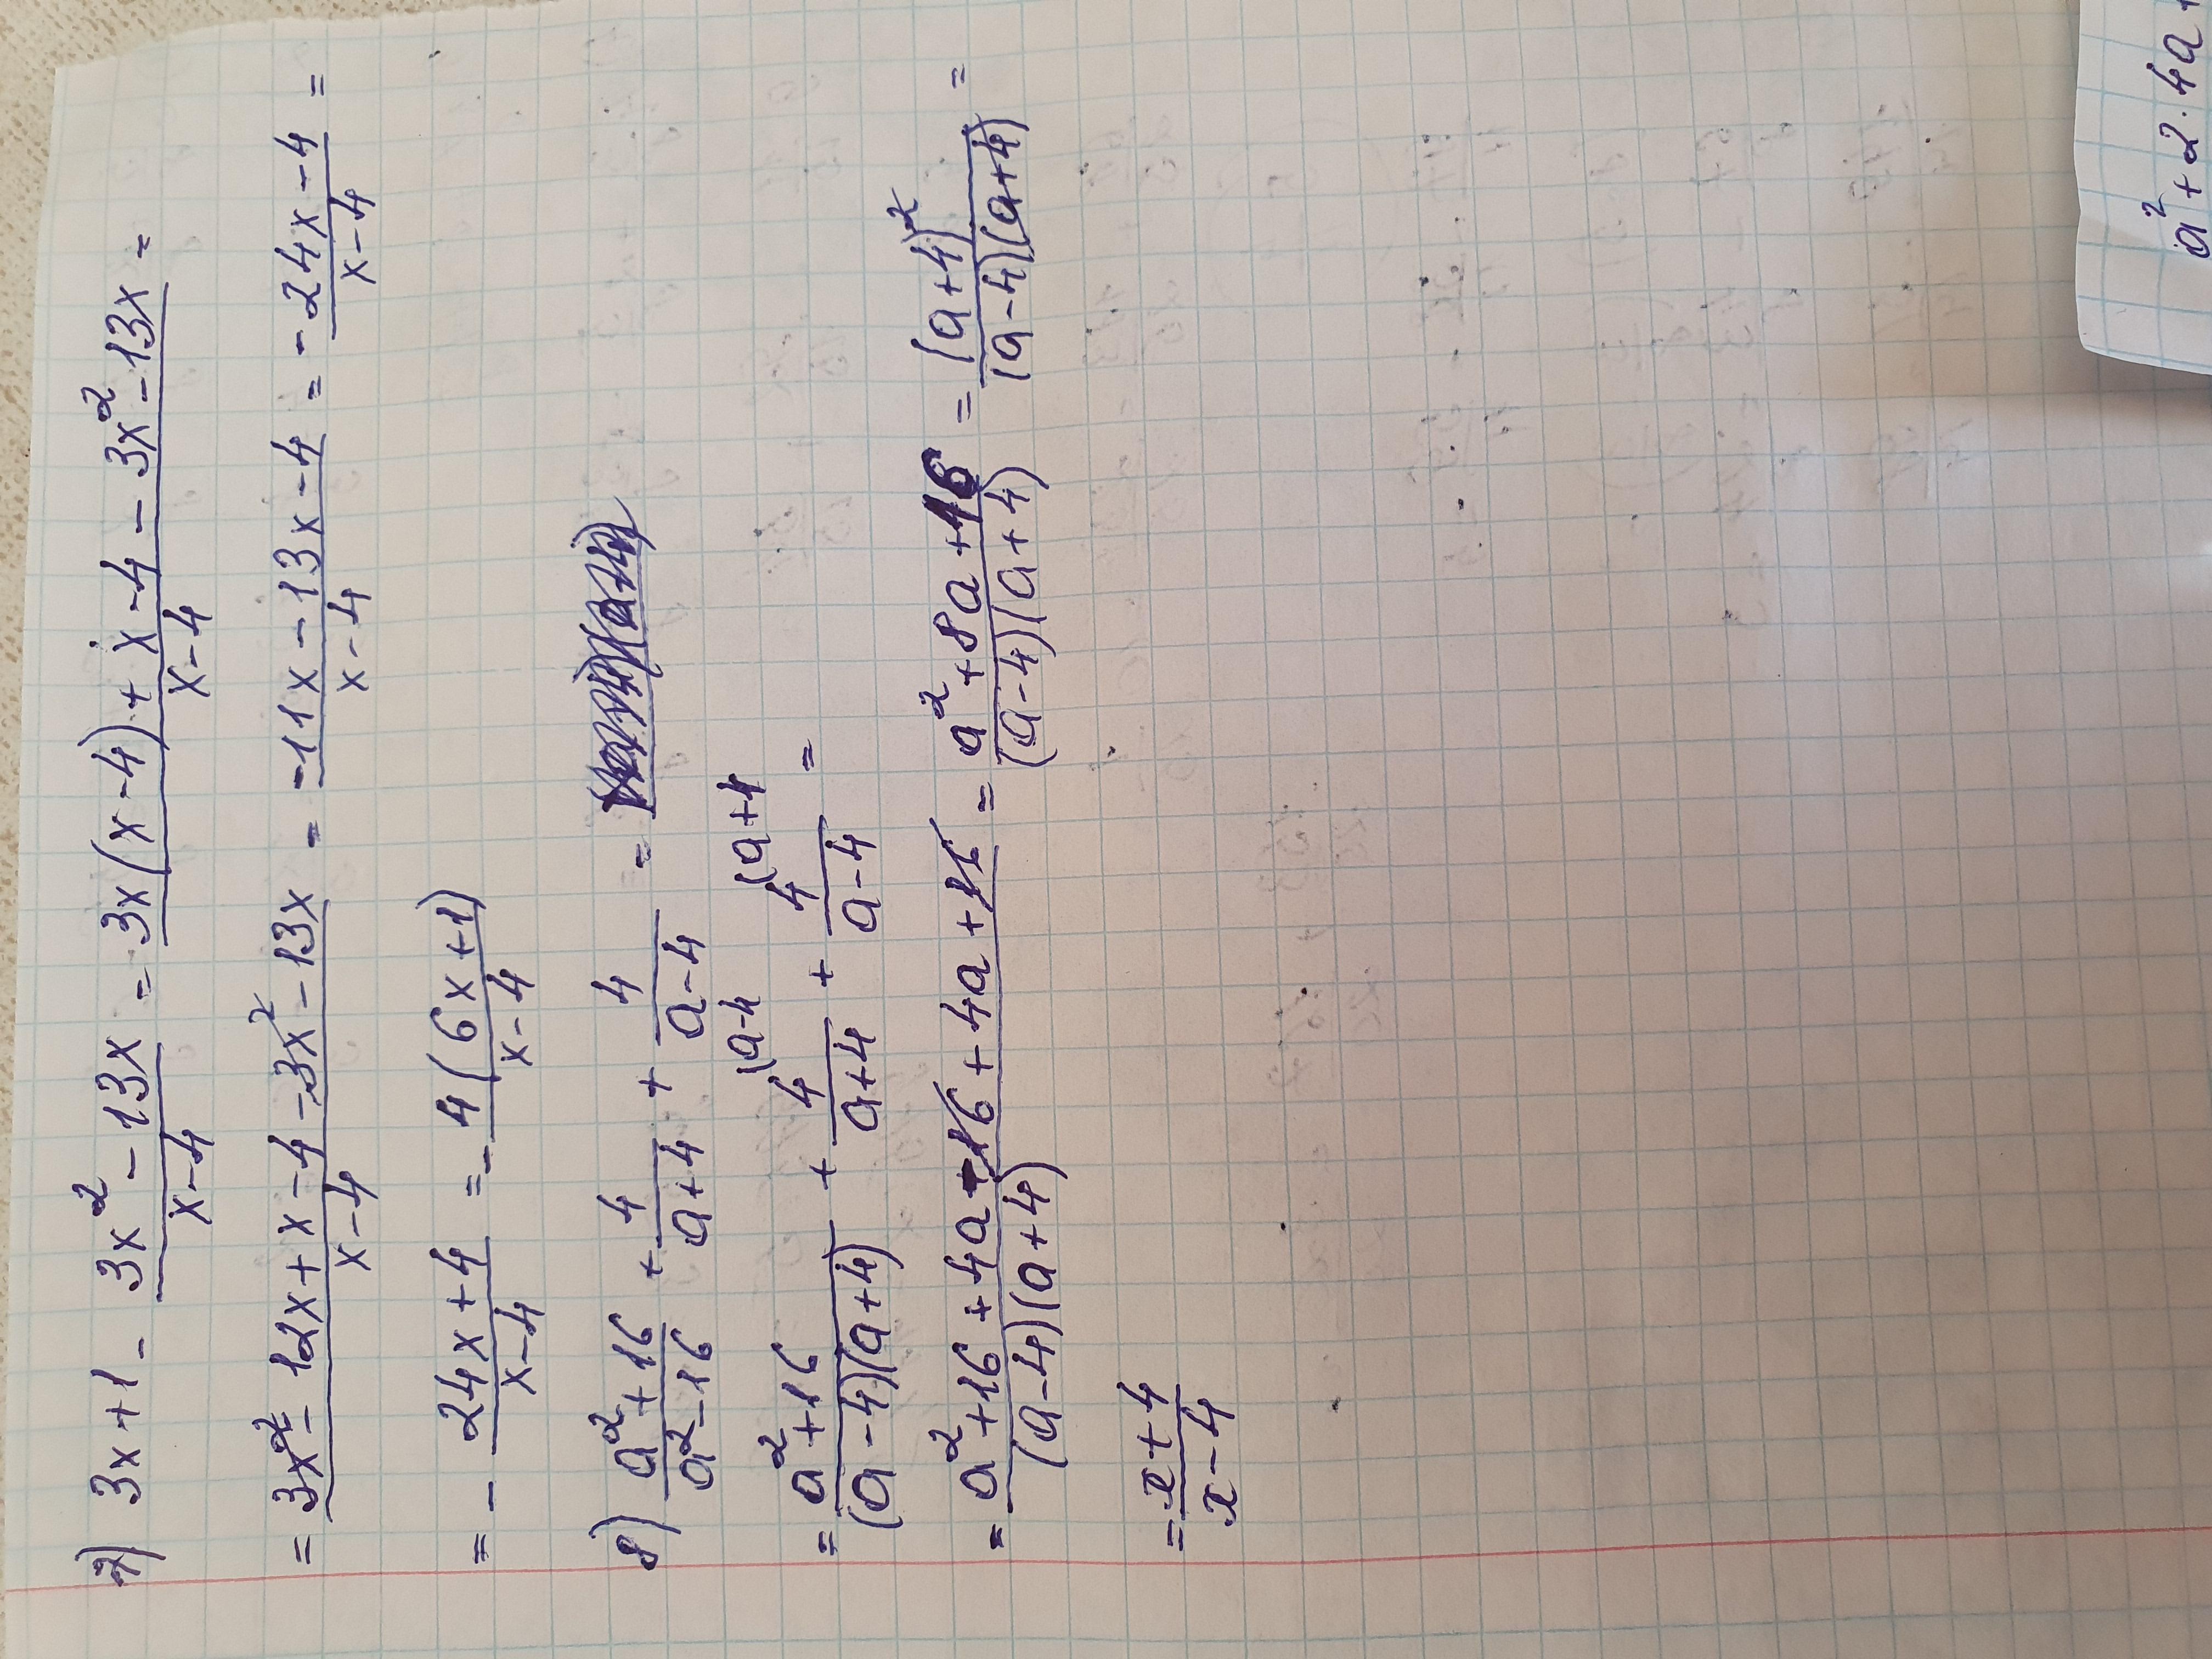 7) 3x+1 - (3x² - 13x)/(x-4) = (3x(x-4) + x-4 - 3x² - 13x)/(x-4) =
= (3x² - 12x + x - 4 - 3x² - 13x)/(x-4) = (-11x - 13x - 4)/(x-4) = (-24x - 4)/(x-4) =
= - (24x+4)/(x-4) = - (4(6x+1))/(x-4)
8) (a²+16)/(a²-16) + 4/(a+4) + 4/(a-4) =
(a-4 (a+4
= (a²+16)/((a-4)(a+4)) + 4/(a+4) + 4/(a-4) =
= (a²+16+4a-16+4a+16)/((a-4)(a+4)) = (a²+8a+16)/((a-4)(a+4)) = (a+4)²/((a-4)(a+4)) =
= (x+4)/(x-4)
a²+2·4a+